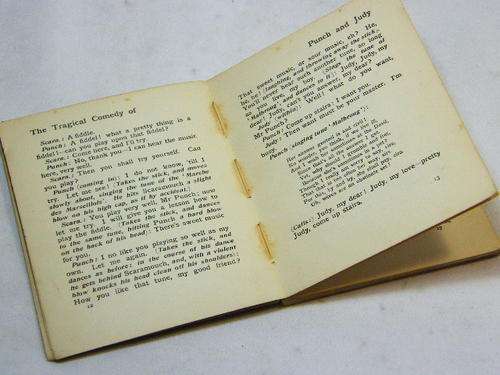 The Tragical Comedy of
Scara.: A fiddle.
Punch: A fiddle! what a pretty thing is a
fiddle!—can you play upon that fiddle?
Scara.: Come here, and I'll try.
Punch: No, thank you, I can hear the music
here, very well.
Scara.: Then you shall try yourself. Can
you play?
Punch (coming in): I do not know, 'till I
try. Let me see! (Takes the stick, and moves
slowly about, singing the tune of the 'Marche
des Marseillois'. He hits Scaramouch a slight
blow on his high cap, as if by accident.)
Scara.: You play very well, Mr Punch; now
let me try. I will give you a lesson how to
play the fiddle. (Takes the stick, and dances
to the same tune, hitting Punch a hard blow
on the back of his head.) There's sweet music
for you.
Punch: I no like you playing so well as my
own. Let me again. (Takes the stick, and
dances as before: in the course of his dance
he gets behind Scaramouch, and, with a violent
blow knocks his head clean off his shoulders):
How you like that tune, my good friend?
12
Punch and Judy
That sweet music, or sour music, eh? He,
he, he! (laughing, and throwing away the stick.)
You'll never hear such another tune, so long
as you live, my boy. (Sings the tune of
'Malbroug', and dances to it): Judy, Judy, my
dear! Judy, can't you answer, my dear?
Judy (within): Well! what do you want,
Mr Punch?
Punch: Come up stairs: I want you.
Judy: Then want must be your master. I'm
busy.
Punch (singing tune 'Malbroug'):
(Calls.): Judy, my dear! Judy, my love—pretty
Judy, come up stairs.
13